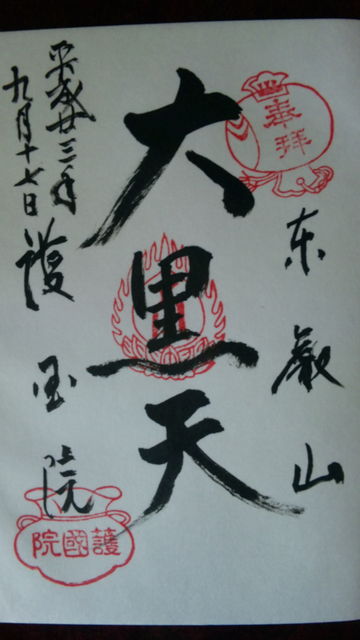 奉拝
東叡山
大黒天
平成廿三年
九月十七日
護国院
護國院